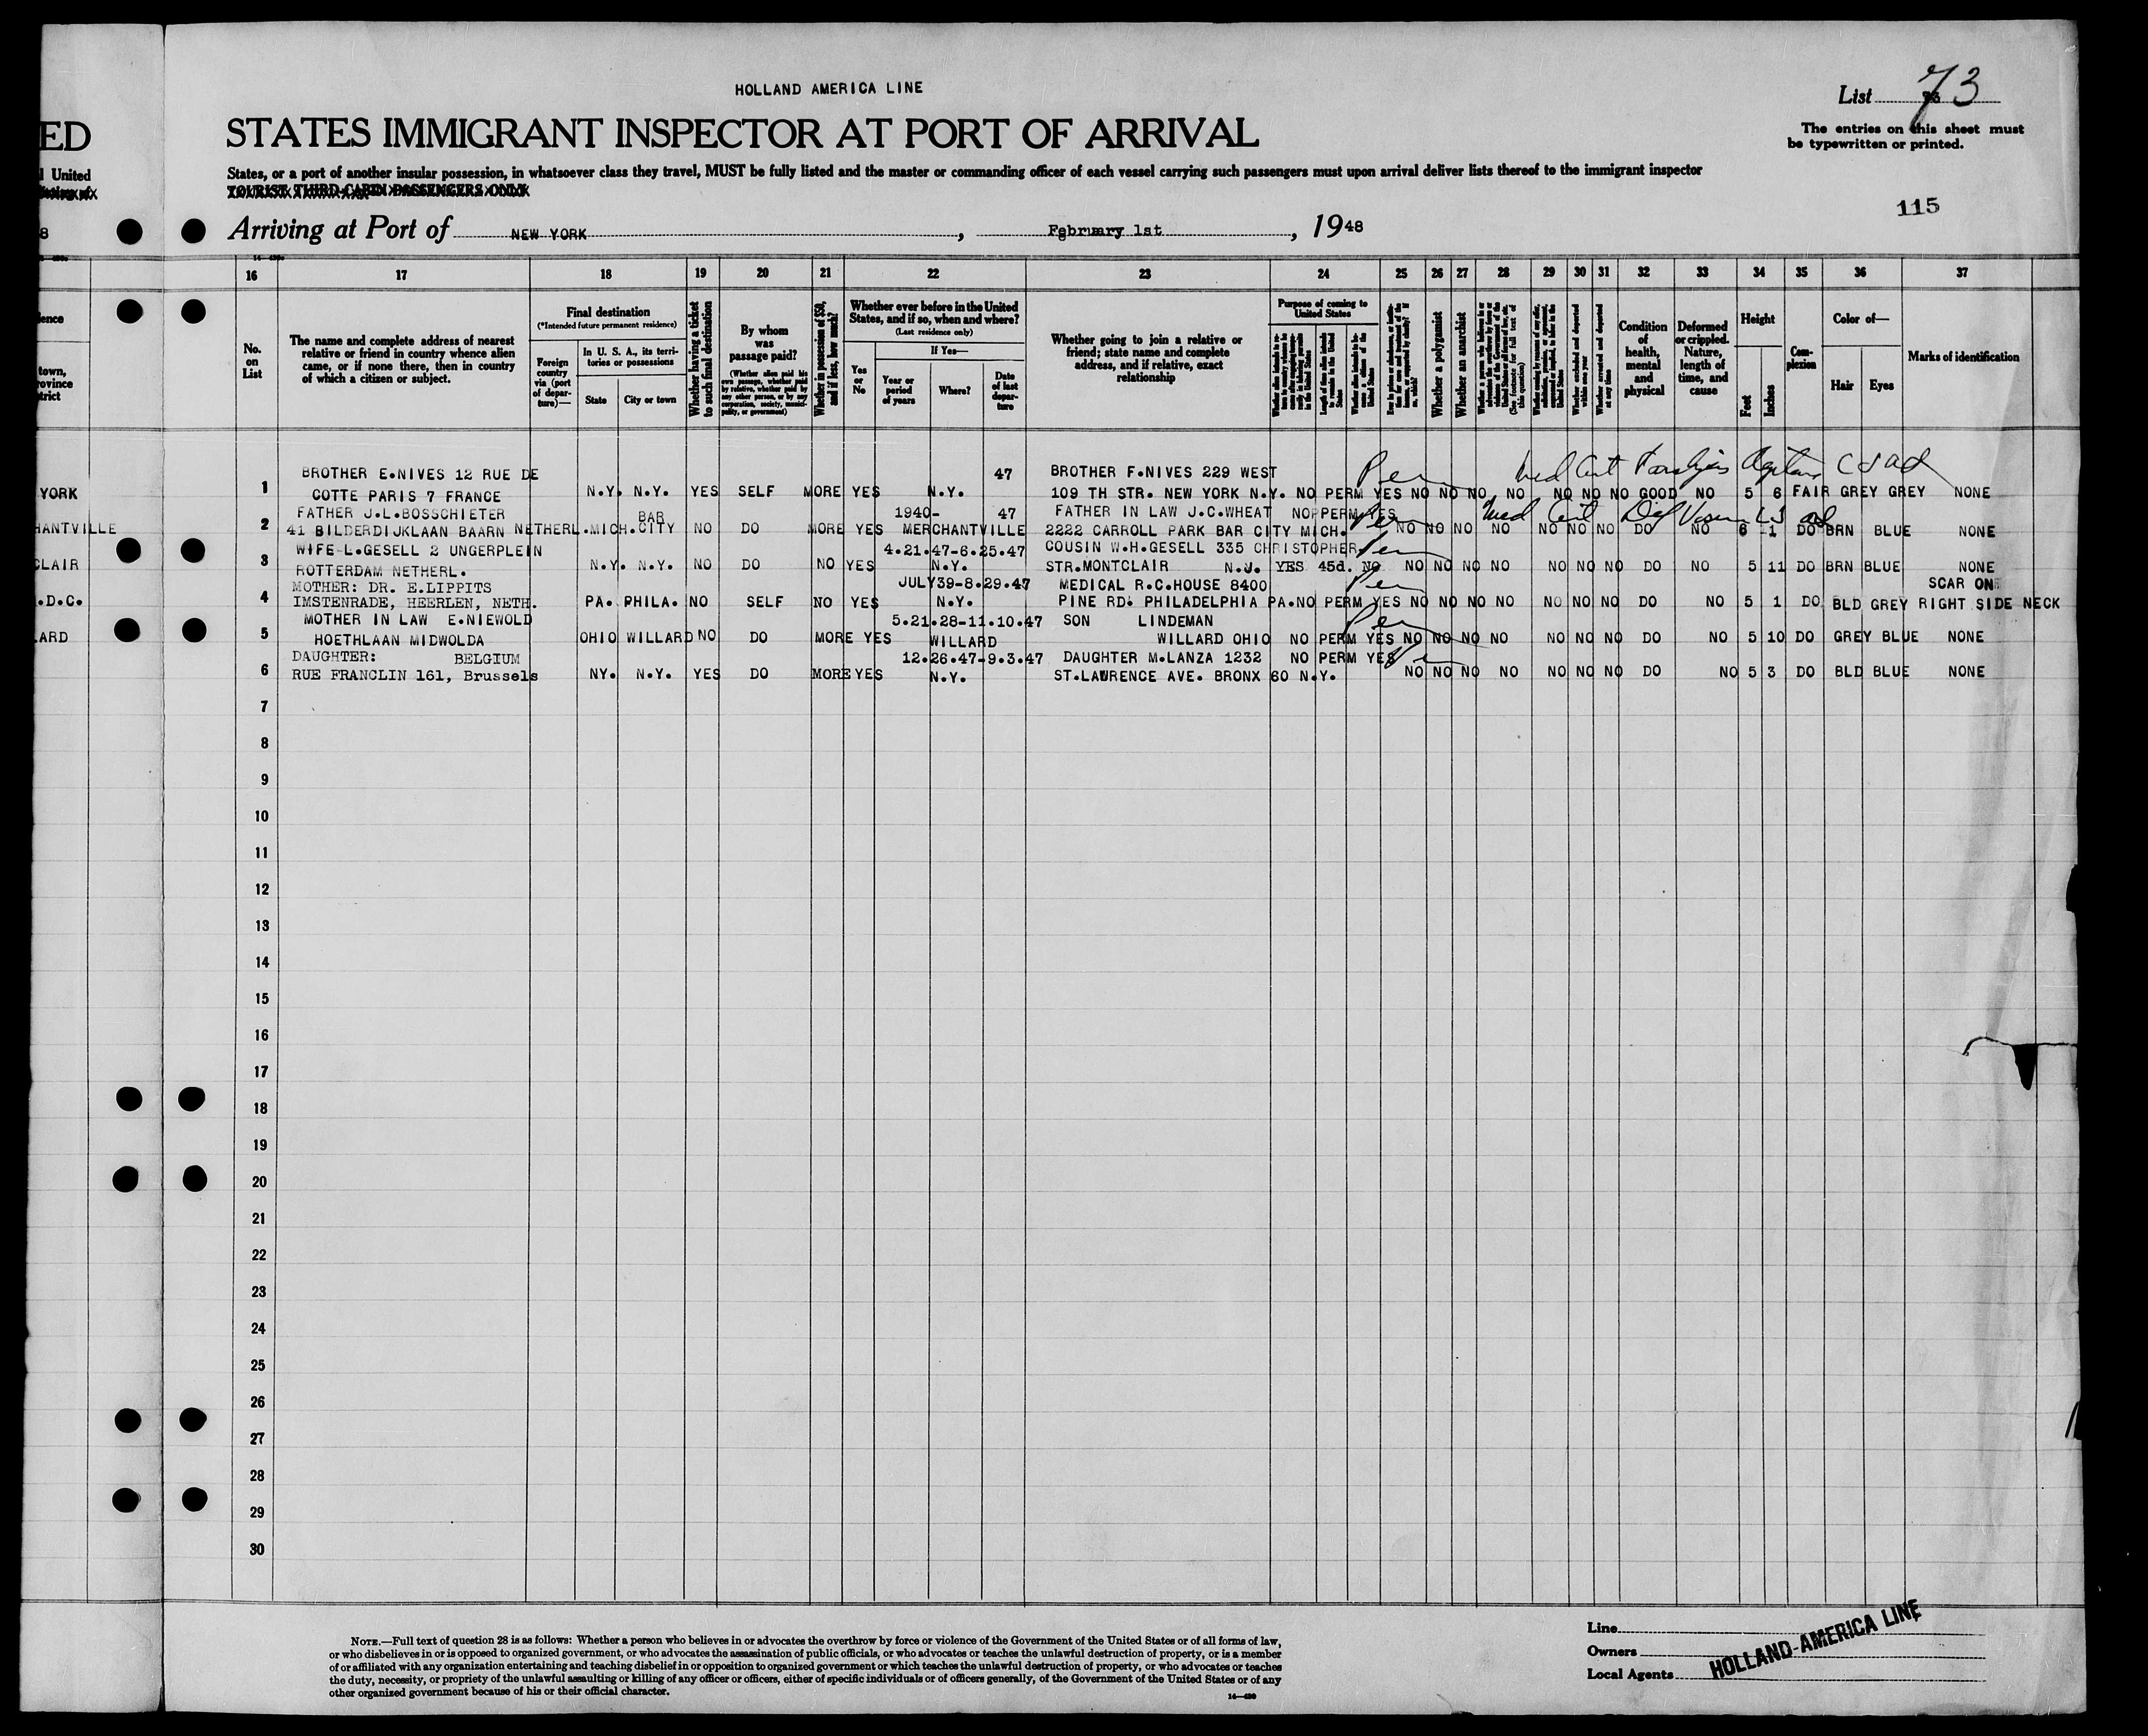 HOLLAND AMERICA LINE
List 73
ED
STATES IMMIGRANT INSPECTOR AT PORT OF ARRIVAL
The entries on this sheet must
be typewritten or printed.
United
States, or a port of another insular possession, in whatsoever class they travel, MUST be fully listed and the master or commanding officer of each vessel carrying such passengers must upon arrival deliver lists thereof to the immigrant inspector
TOURIST THIRD-CABIN PASSENGERS ONLY
115
8
Arriving at Port of NEW YORK, February 1st, 1948
16 17 18 19 20 21 22 23 24 25 26 27 28 29 30 31 32 33 34 35 36 37
No. on List
The name and complete address of nearest relative or friend in country whence alien came, or if none there, then in country of which a citizen or subject.
Final destination
(*Intended future permanent residence)
Foreign country via (port of departure)—
In U. S. A., its territories or possessions
State
City or town
Whether having a ticket to such final destination
By whom was passage paid?
(Whether alien paid his own passage, whether paid by relative, whether paid by any other person, or by any corporation, society, municipality, or government)
Whether in possession of $50, and if less, how much?
Whether ever before in the United States, and if so, when and where?
(Last residence only)
Yes or No
If Yes—
Year or period of years
Where?
Date of last departure
Whether going to join a relative or friend; state name and complete address, and if relative, exact relationship
Purpose of coming to United States
Whether a polygamist
Whether an anarchist
Condition of health, mental and physical
Deformed or crippled. Nature, length of time, and cause
Height
Feet
Inches
Complexion
Color of—
Hair
Eyes
Marks of identification
BROTHER E.NIVES 12 RUE DE 47 BROTHER F.NIVES 229 WEST
YORK 1 COTTE PARIS 7 FRANCE N.Y. N.Y. YES SELF MORE YES N.Y. 109 TH STR. NEW YORK N.Y. NO PERM YES NO NO NO NO NO NO NO GOOD NO 5 6 FAIR GREY GREY NONE
FATHER J.L.BOSSCHIETER BAR 1940- 47 FATHER IN LAW J.C.WHEAT NO PERM YES
HANTVILLE 2 41 BILDERDIJKLAAN BAARN NETHERL. MICH. CITY NO DO MORE YES MERCHANTVILLE 2222 CARROLL PARK BAR CITY MICH. NO NO NO NO NO NO NO DO NO 6 1 DO BRN BLUE NONE
WIFE L.GESELL 2 UNGERPLEIN 4.21.47-6.25.47 COUSIN W.H.GESELL 335 CHRISTOPHER
CLAIR 3 ROTTERDAM NETHERL. N.Y. N.Y. NO DO NO YES N.Y. STR.MONTCLAIR N.J. YES 45d. NO NO NO NO NO NO NO NO DO NO 5 11 DO BRN BLUE NONE
MOTHER: DR. E.LIPPITS JULY39-8.29.47 MEDICAL R.C.HOUSE 8400 SCAR ON
.D.C. 4 IMSTENRADE, HEERLEN, NETH. PA. PHILA. NO SELF NO YES N.Y. PINE RD. PHILADELPHIA PA. NO PERM YES NO NO NO NO NO NO NO DO NO 5 1 DO BLD GREY RIGHT SIDE NECK
MOTHER IN LAW E.NIEWOLD 5.21.28-11.10.47 SON LINDEMAN
ARD 5 HOETHLAAN MIDWOLDA OHIO WILLARD NO DO MORE YES WILLARD WILLARD OHIO NO PERM YES NO NO NO NO NO NO NO DO NO 5 10 DO GREY BLUE NONE
DAUGHTER: BELGIUM 12.26.47-9.3.47 DAUGHTER M.LANZA 1232 NO PERM YES
6 RUE FRANCLIN 161, Brussels NY. N.Y. YES DO MORE YES N.Y. ST.LAWRENCE AVE. BRONX 60 N.Y. NO NO NO NO NO NO NO DO NO 5 3 DO BLD BLUE NONE
7
8
9
10
11
12
13
14
15
16
17
18
19
20
21
22
23
24
25
26
27
28
29
30
NOTE.—Full text of question 28 is as follows: Whether a person who believes in or advocates the overthrow by force or violence of the Government of the United States or of all forms of law,
or who disbelieves in or is opposed to organized government, or who advocates the assassination of public officials, or who advocates or teaches the unlawful destruction of property, or is a member
of or affiliated with any organization entertaining and teaching disbelief in or opposition to organized government or which teaches the unlawful destruction of property, or who advocates or teaches
the duty, necessity, or propriety of the unlawful assaulting or killing of any officer or officers, either of specific individuals or of officers generally, of the Government of the United States or of any
other organized government because of his or their official character.
14—430
Line
Owners
Local Agents
HOLLAND-AMERICA LINE